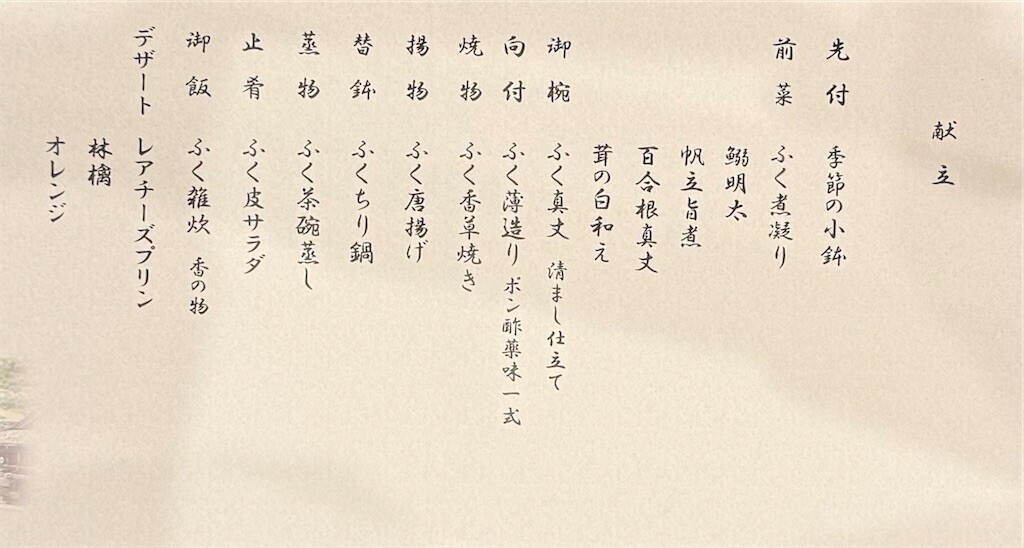 献立
先付 季節の小鉢
前菜 ふく煮凝り
鰯明太
帆立旨煮
百合根真丈
茸の白和え
御椀 ふく真丈 清まし仕立て
向付 ふく薄造り ポン酢薬味一式
焼物 ふく香草焼き
揚物 ふく唐揚げ
替鉢 ふくちり鍋
蒸物 ふく茶碗蒸し
止肴 ふく皮サラダ
御飯 ふく雑炊 香の物
デザート レアチーズプリン
林檎
オレンジ